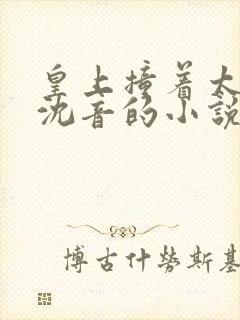 皇上撞着太
沈音的小說
博古什勞斯基